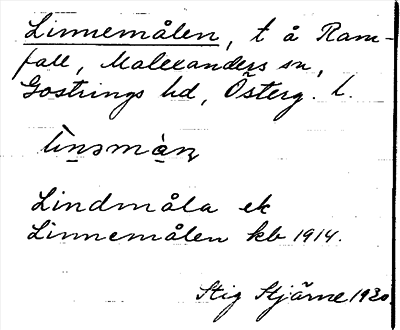 Linnemålen, t å Ram-
fall, Malexanders sn,
Göstrings hd, Österg. l.
Lindmåla ek
Linnemålen kb 1914.
Stig Stjärne 1930.